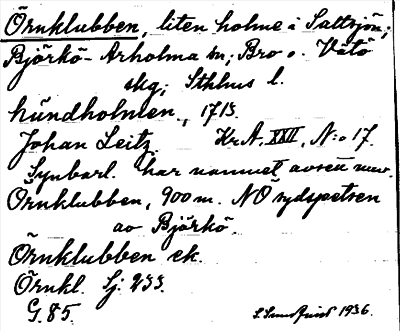 Örnklubben, liten holme i Saltsjön;
Björkö-Arholma sn; Bro o. Vätö
skg; Sthlms l.
hundholmen, 1713.
Johan Leitz. Kr.A, XXII, N:o 17.
Synbarl. har namnet avsett nuv.
Örnklubben, 900 m. NO sydspetsen
av Björkö.
Örnklubben ek.
Örnkl. Sj. 233.
G. 85.
1936.